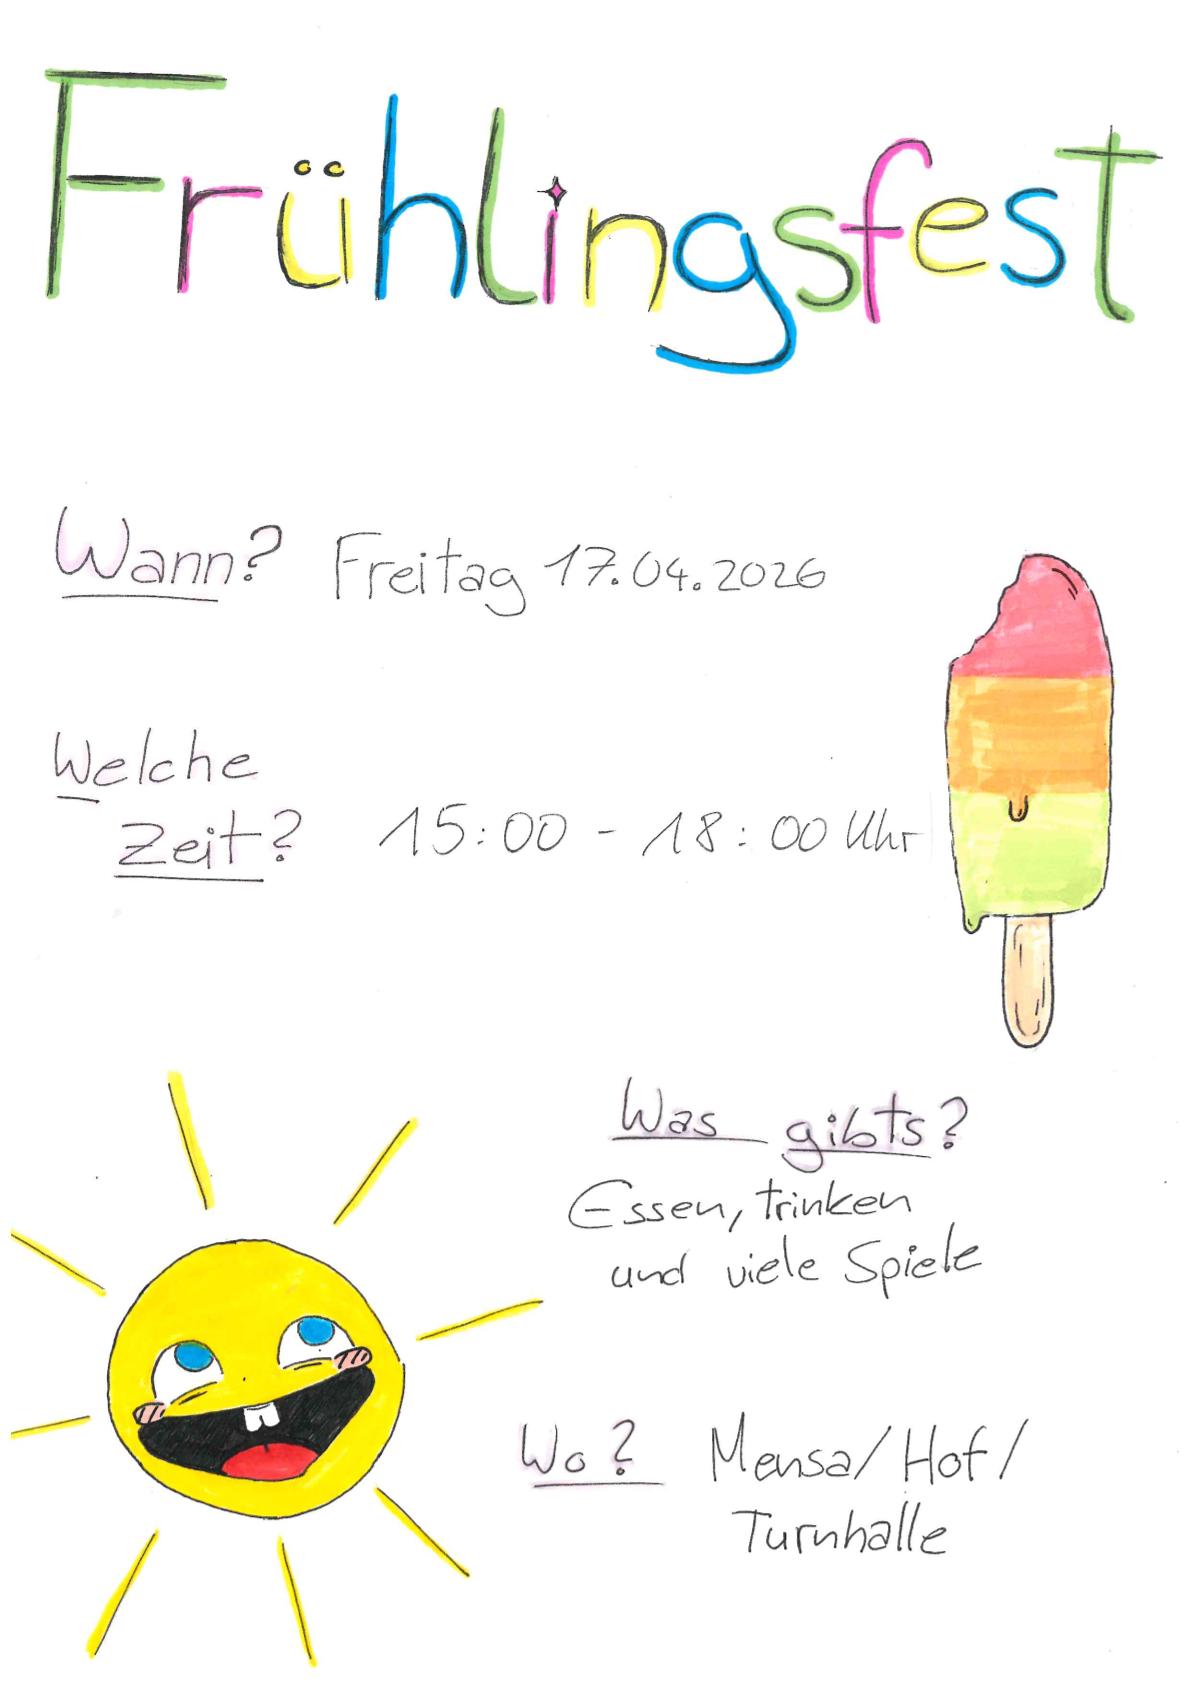 Frühlingsfest
Wann? Freitag 17.04.2026
Welche
Zeit? 15:00 - 18:00 Uhr
Was gibts?
Essen, trinken
und viele Spiele
Wo? Mensa/Hof/
Turnhalle